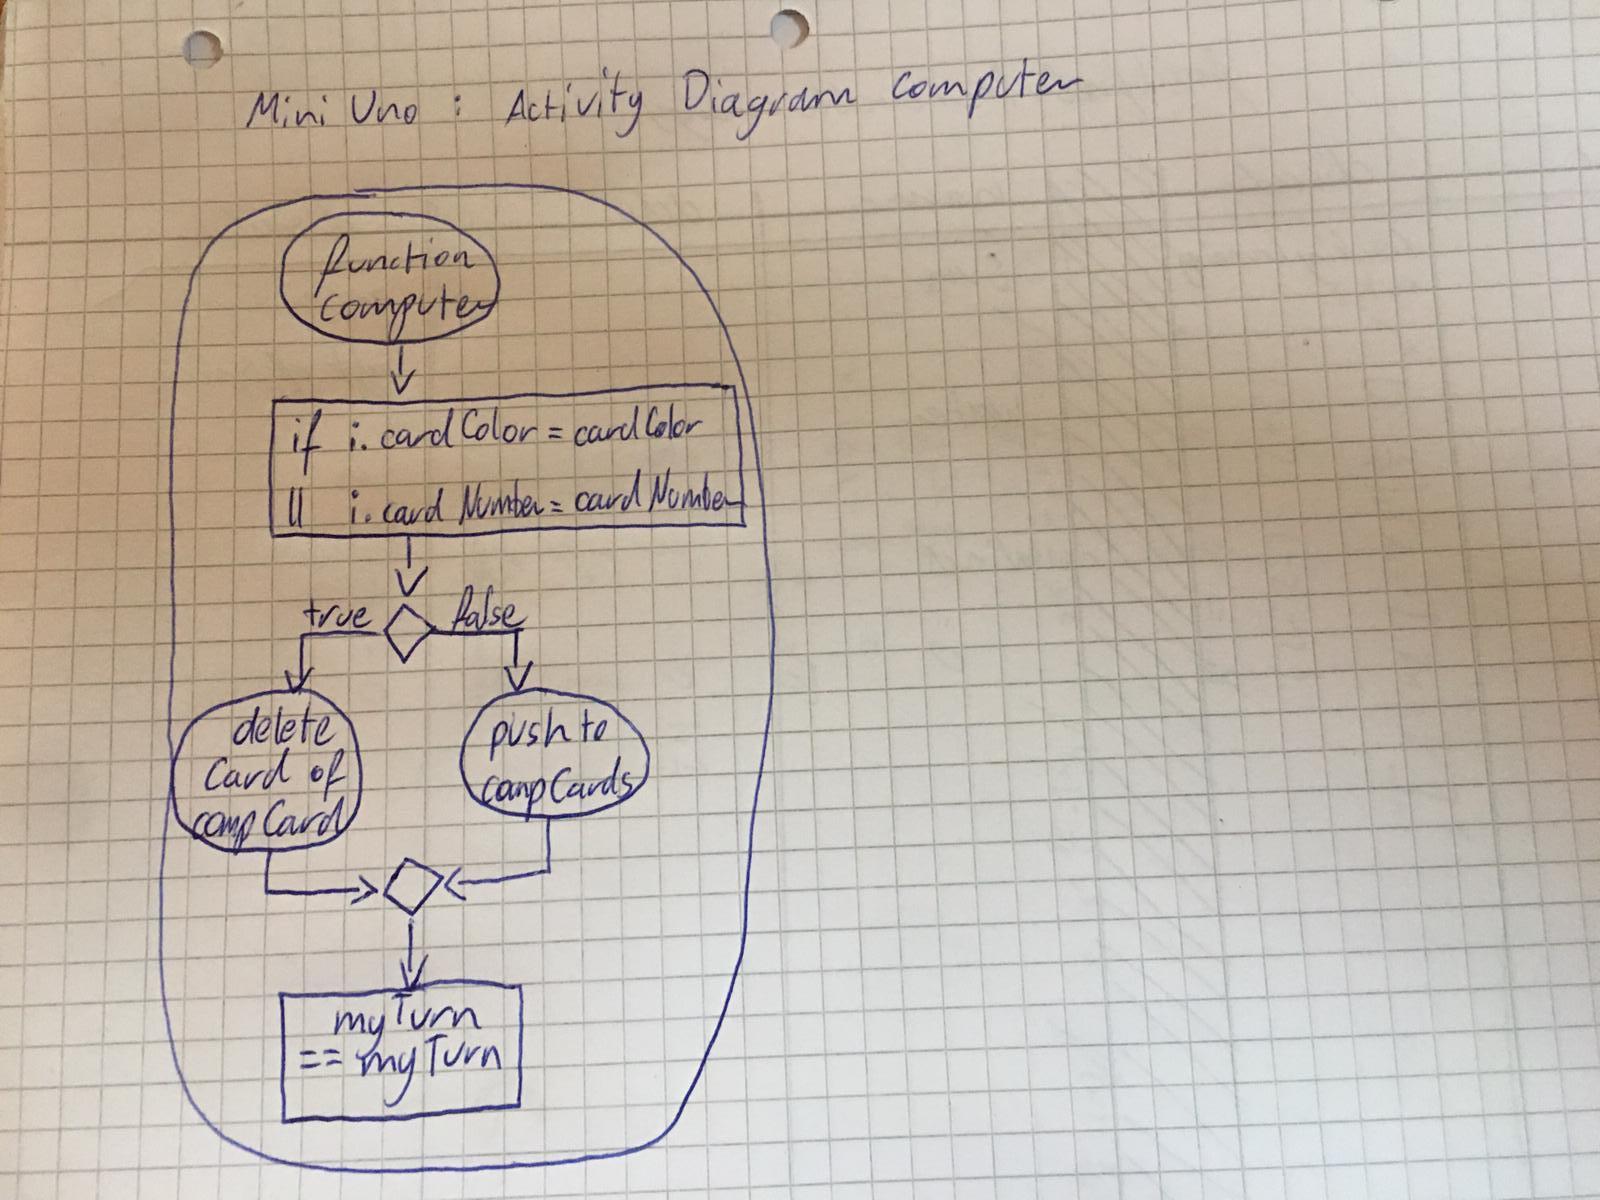 Mini Uno : Activity Diagram Computer
function
computer
if i.cardColor = cardColor
|| i.cardNumber = cardNumber
true false
delete
Card of
compCard
push to
compCards
myTurn
== myTurn